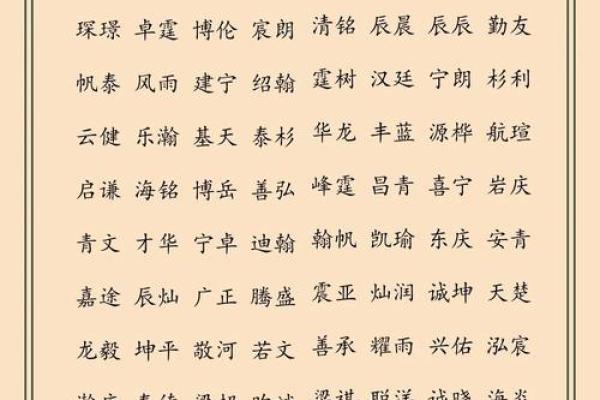 琛璟 卓霆 博伦 宸朗 清铭 辰晨 辰辰 勤友
帆泰 风雨 建宁 绍翰 霆树 汉廷 宁朗 杉利
云健 乐瀚 基天 泰杉 华龙 丰蓝 源桦 航瑄
启谦 海铭 博岳 善弘 峰霆 昌青 喜宁 岩庆
青文 才华 宁卓 迪翰 翰帆 凯瑜 东庆 安青
嘉途 辰灿 广正 腾盛 震亚 灿润 诚坤 天楚
龙毅 坤平 敬河 若文 善承 耀雨 兴佑 泓宸
梁祺 聪洋 诚晓 海炎